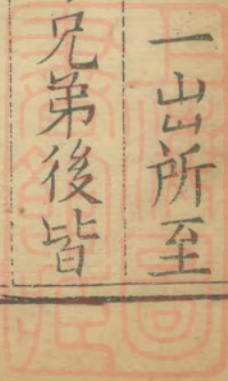 一山所至
兄弟後皆